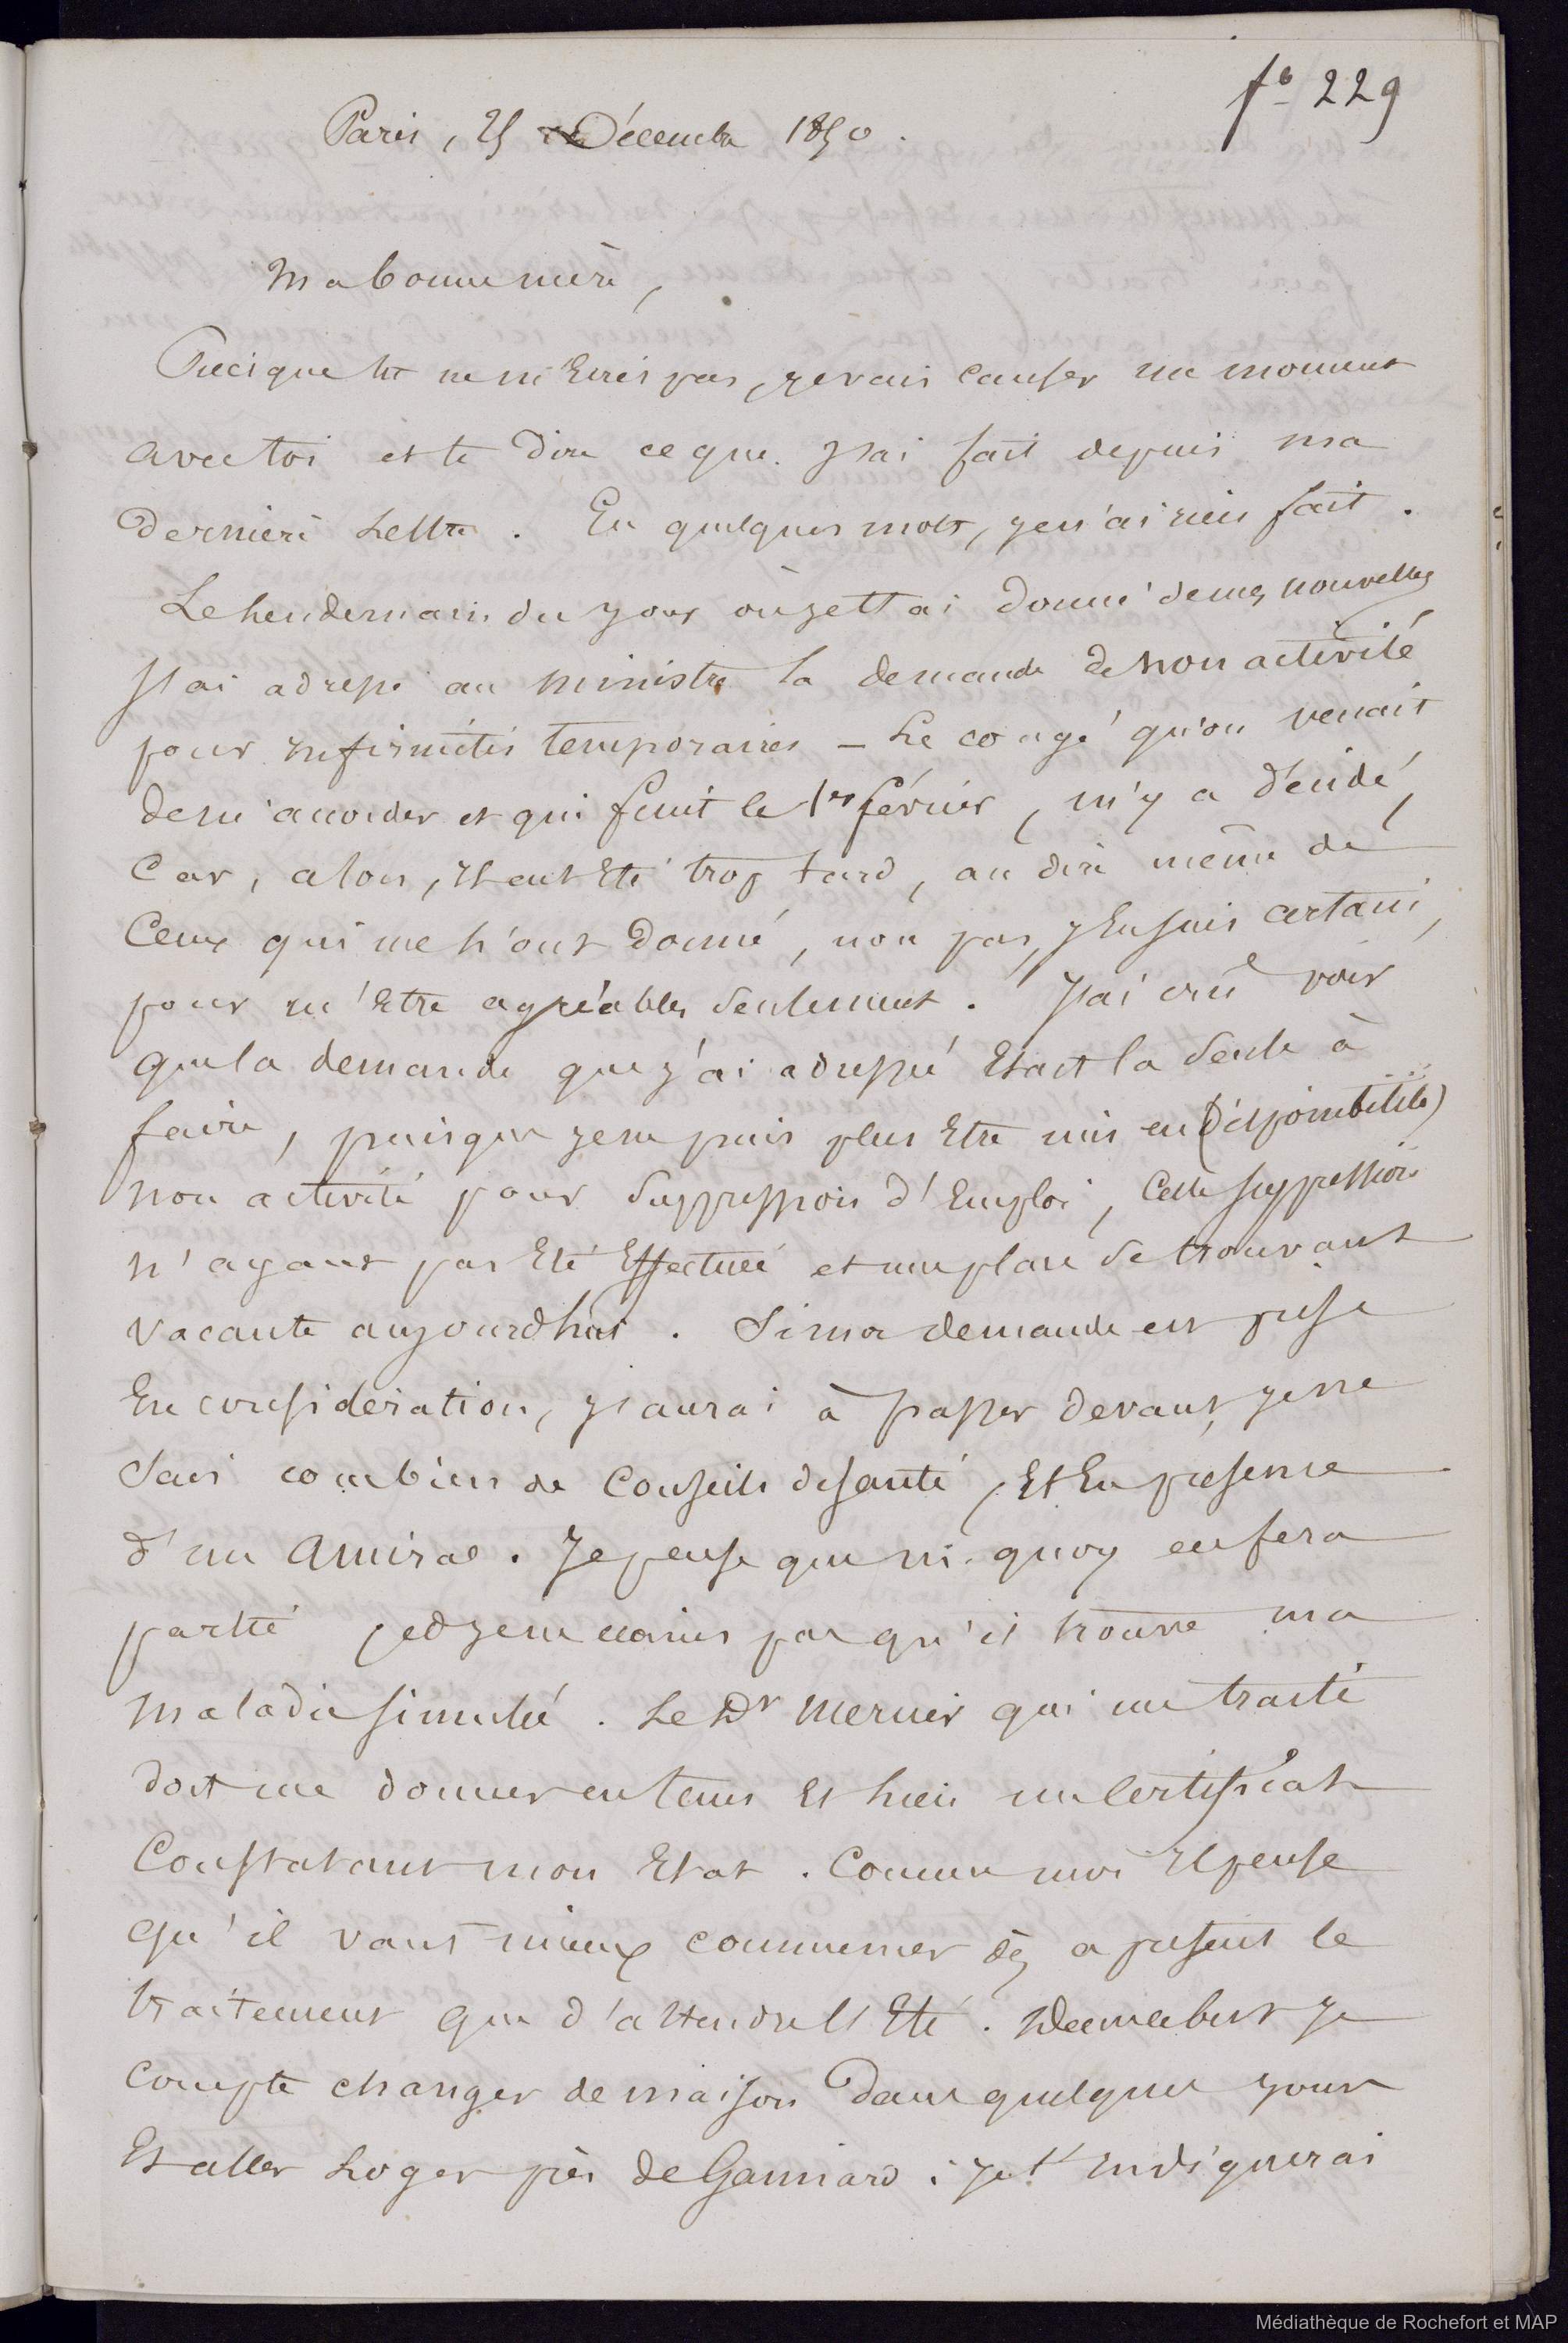 fo 229
Paris, 25 Décembre 1850.
Ma bonne mère,
que tu ne m'écris pas, je vais causer un moment
avec toi et te dire ce que j'ai fait depuis ma
dernière lettre. En quelques mots, je n'ai rien fait.
Le lendemain du jour où je t'ai donné de mes nouvelles
j'ai adressé au ministre la demande de non activité
pour infirmités temporaires – Le congé qu'on venait
de m'accorder et qui finit le 1er février, m'y a décidé,
car, alors, il eut été trop tard, au dire même de
ceux qui me l'ont donné, non pas, j'en suis certain,
pour m'être agréables seulement. J'ai crû voir
que la demande que j'ai adressée était la seule à
faire, puisque je ne puis plus être mis en (disponibilité)
non activité pour suppression d'emploi, cette suppression
n'ayant pas été effectuée et une place se trouvant
vacante aujourdhui. Si ma demande est prise
en considération, j'aurai à passer devant, je ne
sais combien de Conseils de santé, et en présence
d'un amiral. Je pense que m. quoy en fera
partie je ne crains pas qu'il trouve ma
maladie simulée. Le Dr Mercier qui me traite
doit me donner en tems et lieu un certificat
constatant mon état. Comme moi il pense
qu'il vaut mieux commencer dès a présent le
traitement que d'attendre l'été. je
compte changer de maison dans quelques jours
et aller loger près de Ganniard : je t'indiquerai
Médiathèque de Rochefort et MAP